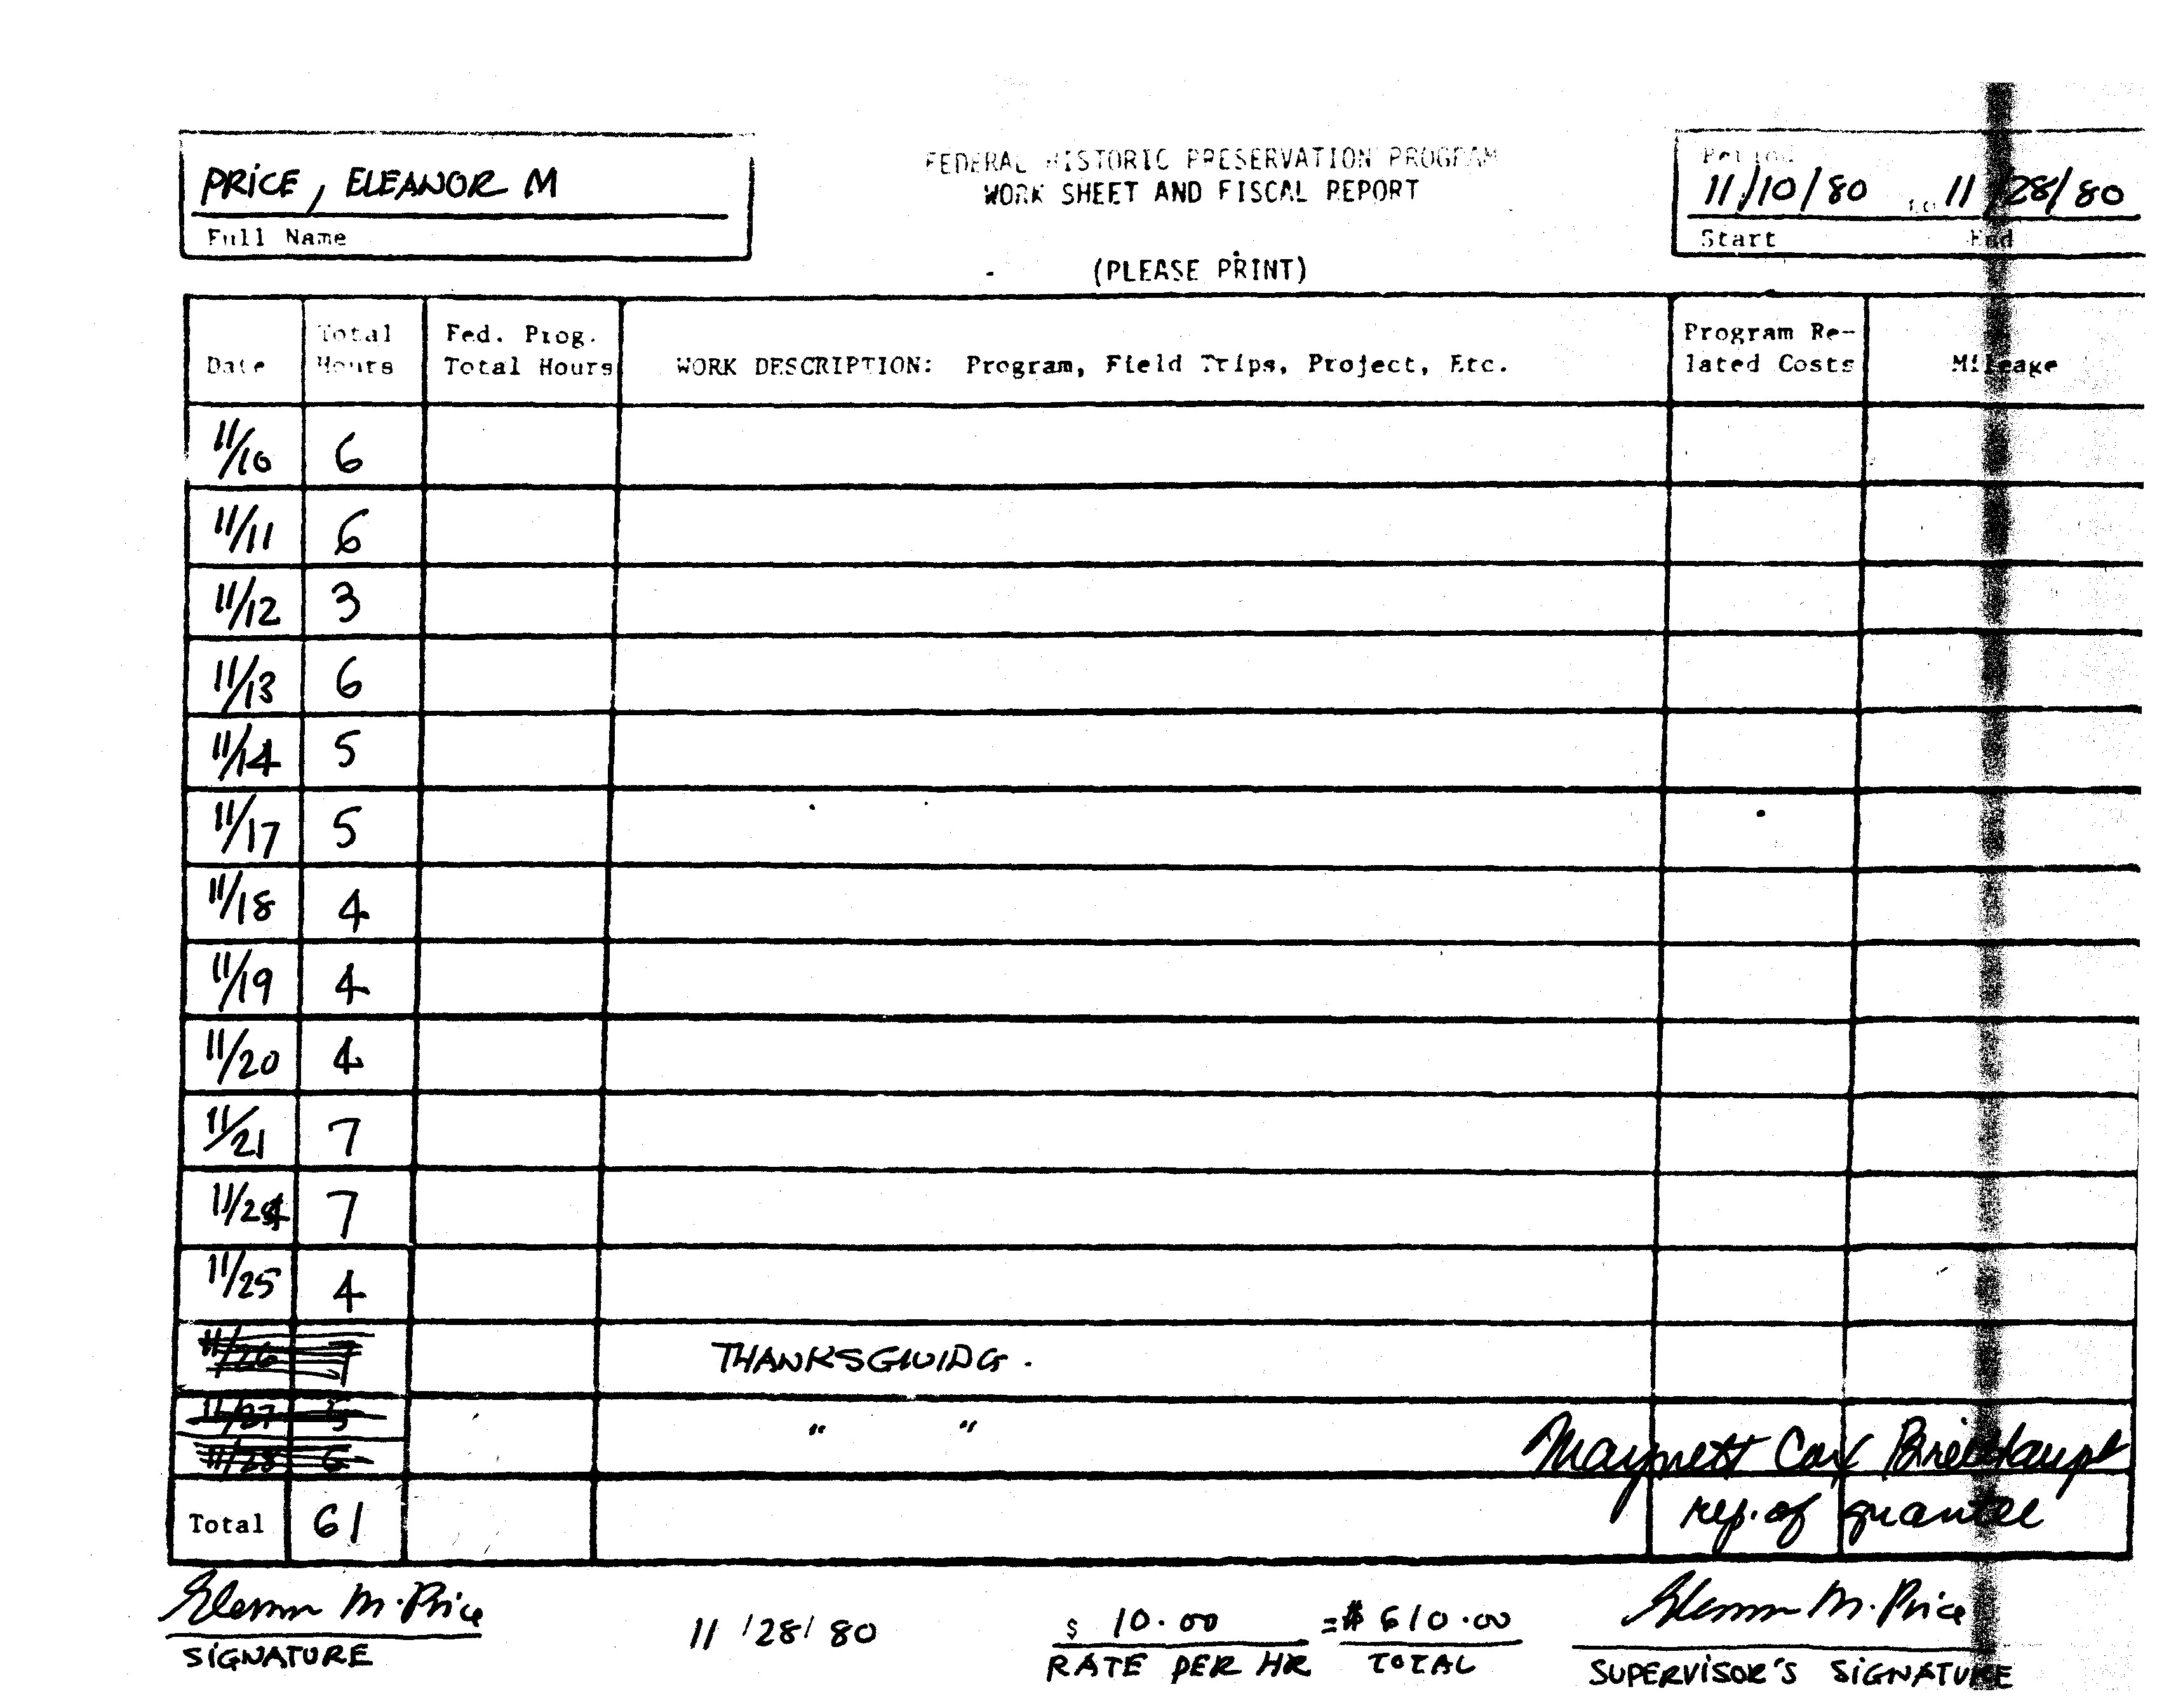 PRICE, ELEANOR M
Full Name
FEDERAL HISTORIC PRESERVATION PROGRAM
WORK SHEET AND FISCAL REPORT
(PLEASE PRINT)
Period
11/10/80 to 11/28/80
Start End
Date Total Hours Fed. Prog. Total Hours WORK DESCRIPTION: Program, Field Trips, Project, Etc. Program Related Costs Mileage
11/10 6
11/11 6
11/12 3
11/13 6
11/14 5
11/17 5
11/18 4
11/19 4
11/20 4
11/21 7
11/24 7
11/25 4
11/26 7 THANKSGIVIDG.
11/27 5 " "
11/28 6
Maynett Cox Breithaupt
Total 61 rep. of grantee
Eleanor M. Price 11/28/80 $ 10.00 =$ 610.00 Eleanor M. Price
SIGNATURE RATE PER HR TOTAL SUPERVISOR'S SIGNATURE